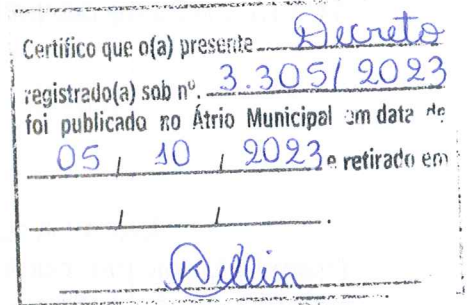 Certifico que o(a) presente Decreto
registrado(a) sob nº. 3.305/2023
foi publicado no Átrio Municipal em data de
05 / 10 / 2023 e retirado em
/ / .